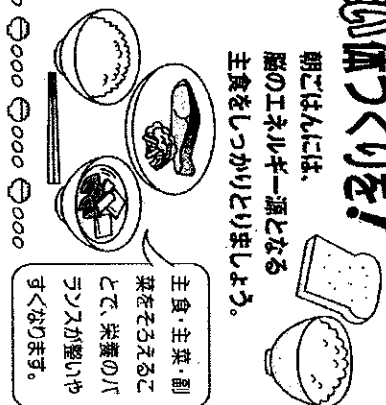 い体づくりを!
朝ごはんには、
脳のエネルギー源となる
主食をしっかりとりましょう。
主食・主菜・副
菜をそろえるこ
とで、栄養のバ
ランスが整いや
すくなります。